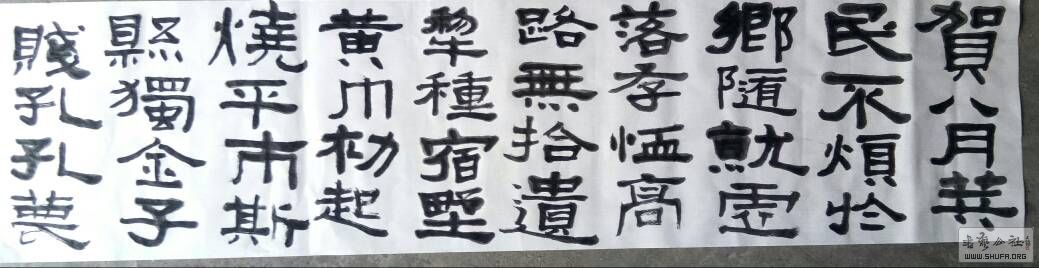 賀八月筭
民不煩於
鄉隨就虛
落存恤高
路無拾遺
犂種宿野
黃巾初起
燒平市斯
縣獨金子
賤孔孔蔑
WWW.SHUFA.ORG